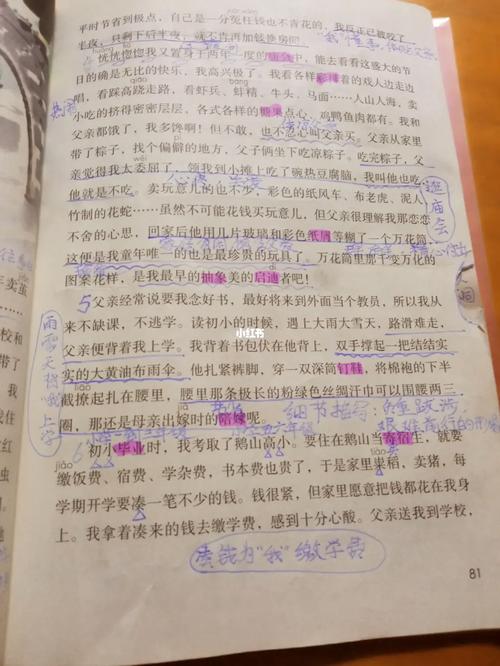 平时节省到极点，自己是一分冤枉钱也不肯花的，我反正已被咬了
半夜，只剩下后半夜，就不肯再加钱换房吧
恍恍惚惚我又置身于两年一度的庙会中，能去看看这盛大的节
日的确是无比的快乐，我高兴极了。我看各样彩排着的戏人边走边
唱，看踩高跷走路，看虾兵、蚌精、牛头、马面……人山人海，卖
小吃的挤得密密层层，各式各样的糖果点心、鸡鸭鱼肉都有。我和
父亲都饿了，我多馋啊！但不敢，也不忍心叫父亲买。父亲从家里
带了粽子，找个偏僻的地方，父子俩坐下吃凉粽子。吃完粽子，父
亲觉得我太委屈了，领我到小摊上吃了碗热豆腐脑，我叫他也吃，
他就是不吃。卖玩意儿的也不少，彩色的纸风车、布老虎、泥人
竹制的花蛇……虽然不可能花钱买玩意儿，但父亲很理解我那恋恋
不舍的心思，回家后他用几片玻璃和彩色纸屑等糊了一个万花筒，
这便是我童年唯一的也是最珍贵的玩具了。万花筒里那千变万化的
图案花样，是我最早的抽象美的启迪者吧！
逛庙会
5 父亲经常说要我念好书，最好将来到外面当个教员，所以我从
来不缺课，不逃学。读初小的时候，遇上大雨大雪天，路滑难走，
父亲便背着我上学。我背着书包伏在他背上，双手撑起一把结结实
实的大黄油布雨伞。他扎紧裤脚，穿一双深筒钉鞋，将棉袍的下半
截撩起扎在腰里，腰里那条极长的粉绿色丝绸汗巾可以围腰两三
圈，那还是母亲出嫁时的陪嫁呢。
雨雪天背“我”上学
细节描写
初小毕业时，我考取了鹅山高小。要住在鹅山当寄宿生，就要
缴饭费、宿费、学杂费，书本费也贵了，于是家里粜稻，卖猪，每
学期开学要凑一笔不少的钱。钱很紧，但家里愿意把钱都花在我身
上。我拿着凑来的钱去缴学费，感到十分心酸。父亲送我到学校，
卖钱为“我”缴学费
小红书
81